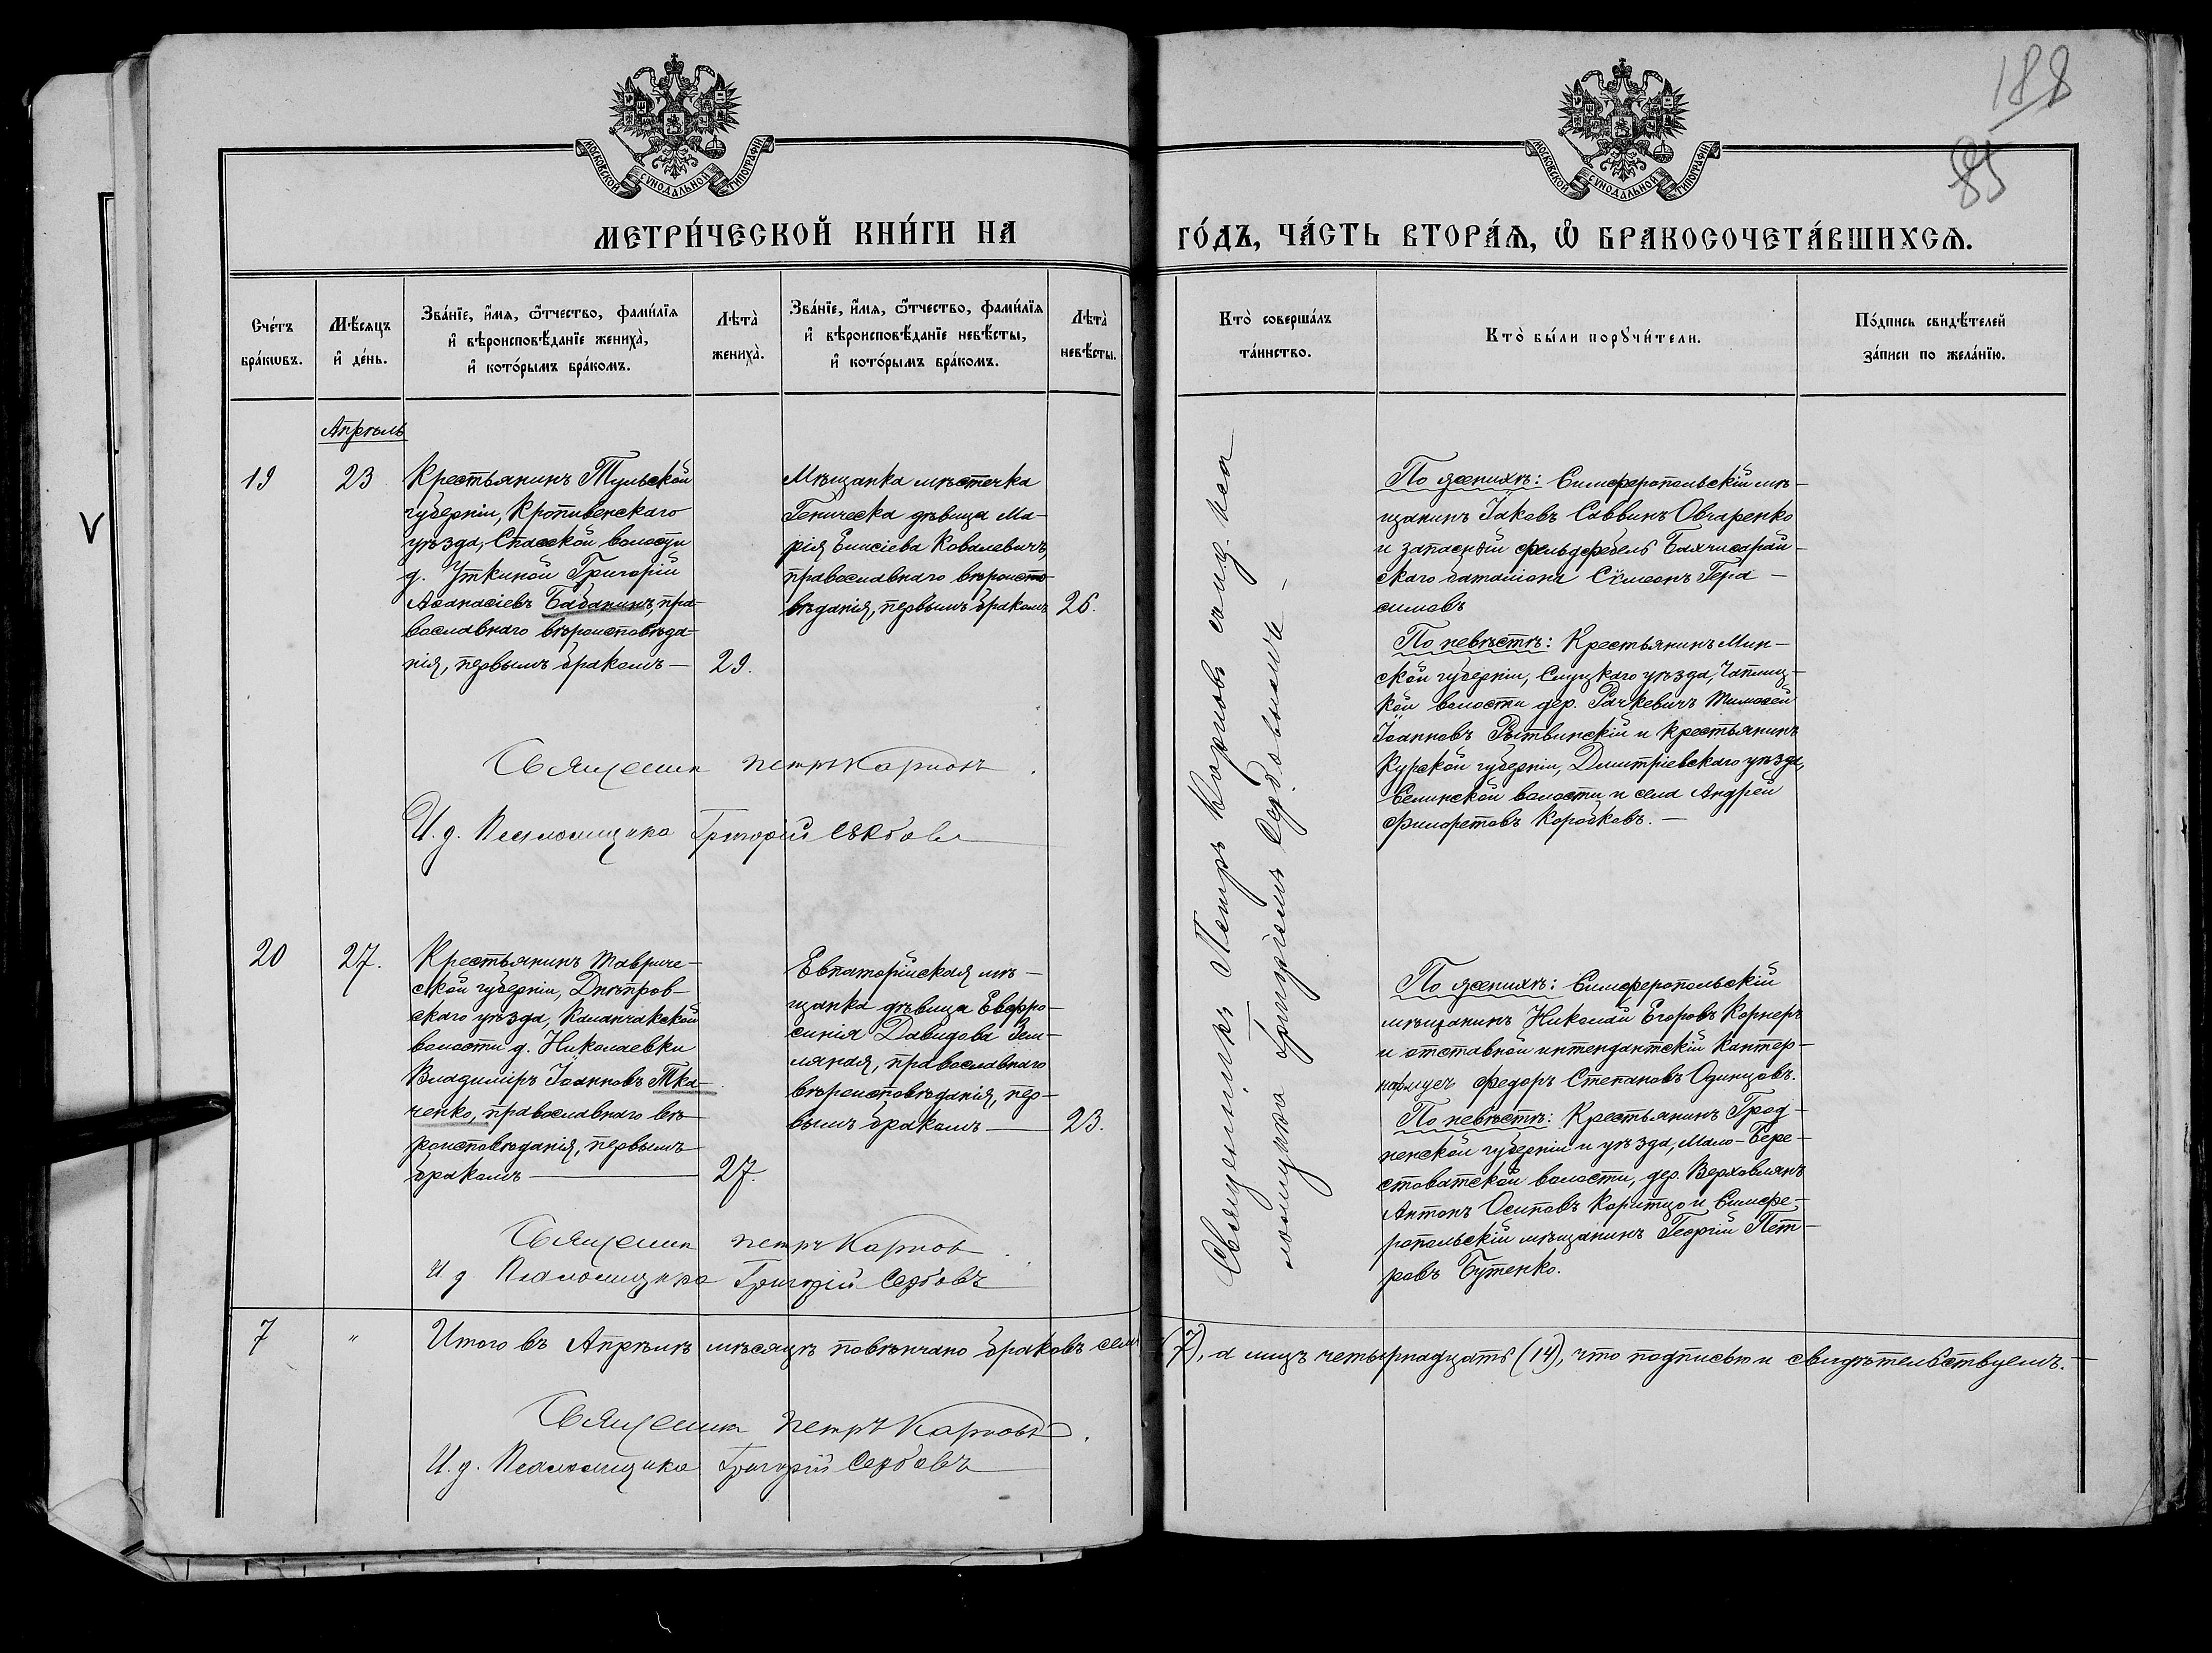 188
85
МОСКОВСКОЙ СУНОДАЛЬНОЙ ТИПОГРАФІИ
МОСКОВСКОЙ СУНОДАЛЬНОЙ ТИПОГРАФІИ
МЕТРИ́ЧЕСКОЙ КНИ́ГИ НА
ГО́ДЪ, ЧА́СТЬ ВТОРА́Ѧ, Ѡ҆ БРАКОСОЧЕТА́ВШИХСѦ.
Сче́тъ
бра́кѡвъ.
Мѣ́сяцъ
и҆ де́нь.
Зва́нїе, и҆́мя, ѻ҆́тчество, фами́лїя
и҆ вѣроисповѣ́данїе жениха̀,
и҆ кото́рымъ бра́комъ.
Лѣта̀
жениха̀.
Зва́нїе, и҆́мя, ѻ҆́тчество, фами́лїя
и҆ вѣроисповѣ́данїе невѣ́сты,
и҆ кото́рымъ бра́комъ.
Лѣта̀
невѣ́сты.
Кто̀ соверша́лъ
та́инство.
Кто̀ бы́ли порꙋчи́тели.
По́дпись свидѣ́телей
за́писи по жела́нїю.
Апрѣль
19
23
Крестьянинъ Тульской
губерніи, Кропивенскаго
уѣзда, Спасской волости
д. Уткиной Григорій
Аѳанасіевъ Бабанинъ, пра-
вославнаго вѣроисповѣда-
нія, первымъ бракомъ —
29.
Мѣщанка мѣстечка
Геническа дѣвица Ма-
рія Елисіева Ковалевичъ,
православнаго вѣроиспо-
вѣданія, первымъ бракомъ
26.
Священникъ Петръ Карповъ съ и. д. пса
ломщика Григоріемъ Сербовымъ —
По женихѣ: Симферопольскій мѣ-
щанинъ Іаковъ Саввинъ Овчаренко
и запасный фельдфебель Бахчисарай-
скаго баталіона Сѵмеонъ Гера-
симовъ
По невѣстѣ: Крестьянинъ Мин-
ской губерніи, Слуцкаго уѣзда, Чаплиц-
кой волости дер. Рачкевичъ Тимоѳей
Іоанновъ Рытвинскій и крестьянинъ
Курской губерніи, Дмитріевскаго уѣзда,
Селинской волости и села Андрей
Филаретовъ Коробковъ. —
Священникъ Петръ Карповъ.
И. д. Псаломщика Григорій Сербовъ
20
27.
Крестьянинъ Тавриче-
ской губерніи, Днѣпров-
скаго уѣзда, Каланчакской
волости д. Николаевки
Владиміръ Іоанновъ Тка-
ченко, православнаго вѣ-
роисповѣданія, первымъ
бракомъ —
27.
Евпаторійская мѣ-
щанка дѣвица Евфро-
синія Давидова Зем-
ляная, православнаго
вѣроисповѣданія, пер-
вымъ бракомъ —
23.
По женихѣ: Симферопольскій
мѣщанинъ Николай Егоровъ Корнеръ
и отставной интендантскій кантер-
Федоръ Степановъ Одинцовъ.
По невѣстѣ: Крестьянинъ Грод-
ненской губерніи и уѣзда, Мало-Бере-
стоватской волости, дер. Верховлянъ
Антонъ Осиповъ Каритцо и Симфе-
ропольскій мѣщанинъ Георгій Пет-
ровъ Бутенко.
Священникъ Петръ Карповъ.
И д Псаломщика Григорій Сербовъ
7
"
Итого въ Апрѣлѣ мѣсяцѣ повѣнчано браковъ семь (7), а лицъ четырнадцать (14), что подписью и свидѣтельствуемъ. —
Священникъ Петръ Карповъ.
И. д. Псаломщика Григорій Сербовъ